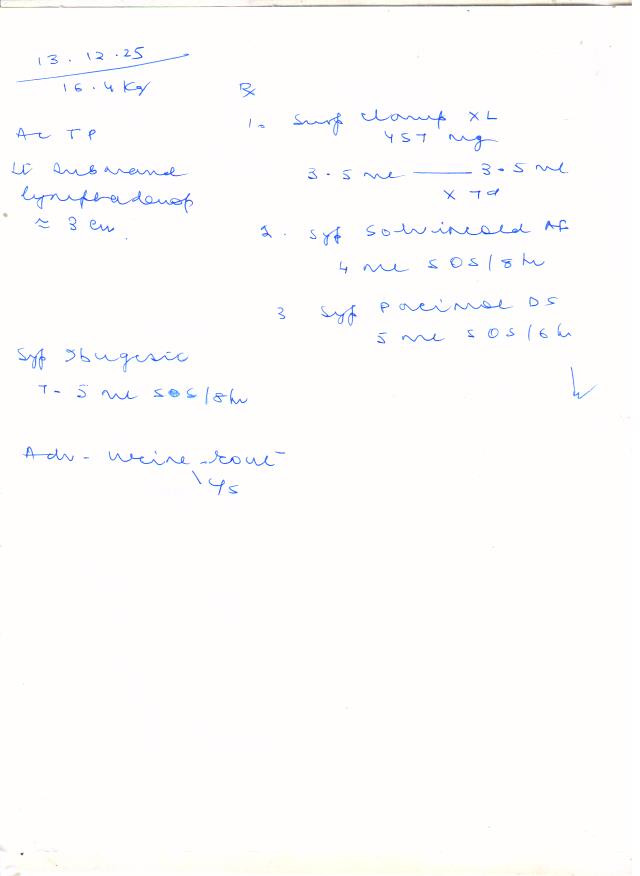 13.12.25
16.4 Kg
Ac TP
Lt submand
lymphadenop
≈ 3 cm
Rx
1. Susp Clamp XL
457 mg
3.5 ml —— 3.5 ml
x 7d
2. Syp Solvincold AF
4 ml SOS/8hr
3 Syp Pacimol DS
5 ml SOS/6hr
Syp Ibugesic
7-5 ml SOS/8hr
Adv - Urine rout
c/s